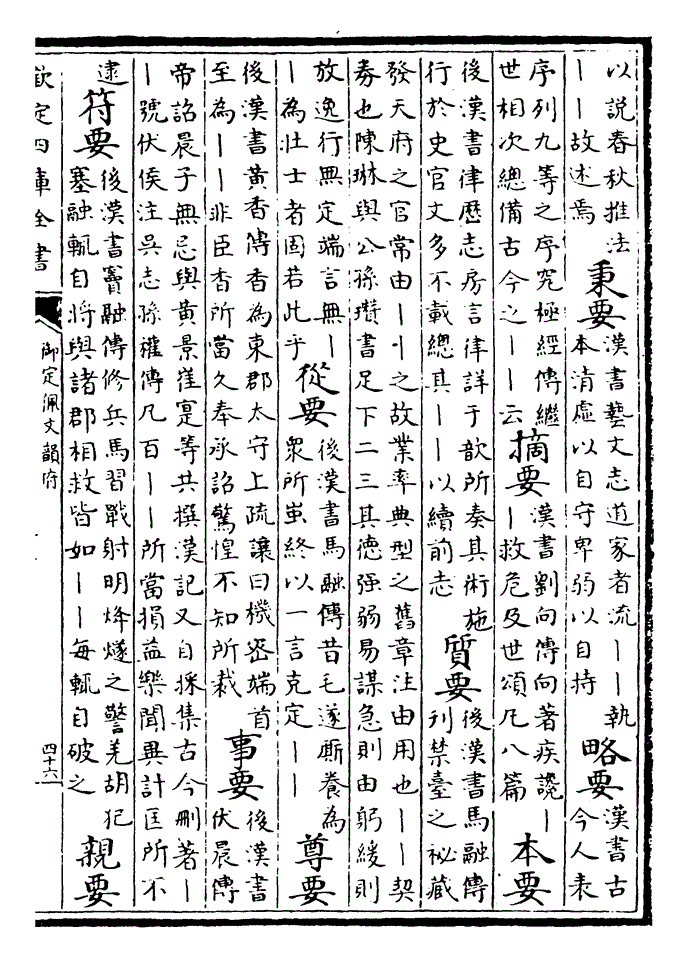 以說春秋推法丨丨故述焉 秉要 漢書藝文志道家者流丨丨執本清虛以自守卑弱以自持 略要 漢書古今人表
序列九等之序究極經傳繼世相次總備古今之丨丨云 摘要 漢書劉向傳向著疾讒丨丨救危及世頌凡八篇 本要
後漢書律歷志房言律詳于歆所奏其術施行於史官文多不載總其丨丨以續前志 質要 後漢書馬融傳列禁臺之祕藏
發天府之官常由丨丩之故業率典型之舊章注由用也丨丨契劵也陳琳與公孫瓚書足下二三其德强弱易謀急則由躬緩則
放逸行無定端言無丨丨為壯士者固若此乎 從要 後漢書馬融傳昔毛遂廝養為眾所蚩終以一言克定丨丨 尊要
後漢書黃香傳香為東郡太守上疏讓曰機密端首至為丨丨非臣香所當久奉承詔驚惶不知所裁 事要 後漢書伏晨傳
帝詔晨子無忌與黃景崔寔等共撰漢記又自採集古今刪著丨丨號伏侯注吳志孫權傳凡百丨丨所當損益樂聞異計匡所不
逮 符要 後漢書竇融傳修兵馬習戰射明烽燧之警羌胡犯塞融輒自將與諸郡相救皆如丨丨每輒自破之 親要
欽定四庫全書
御定佩文韻府
四十六